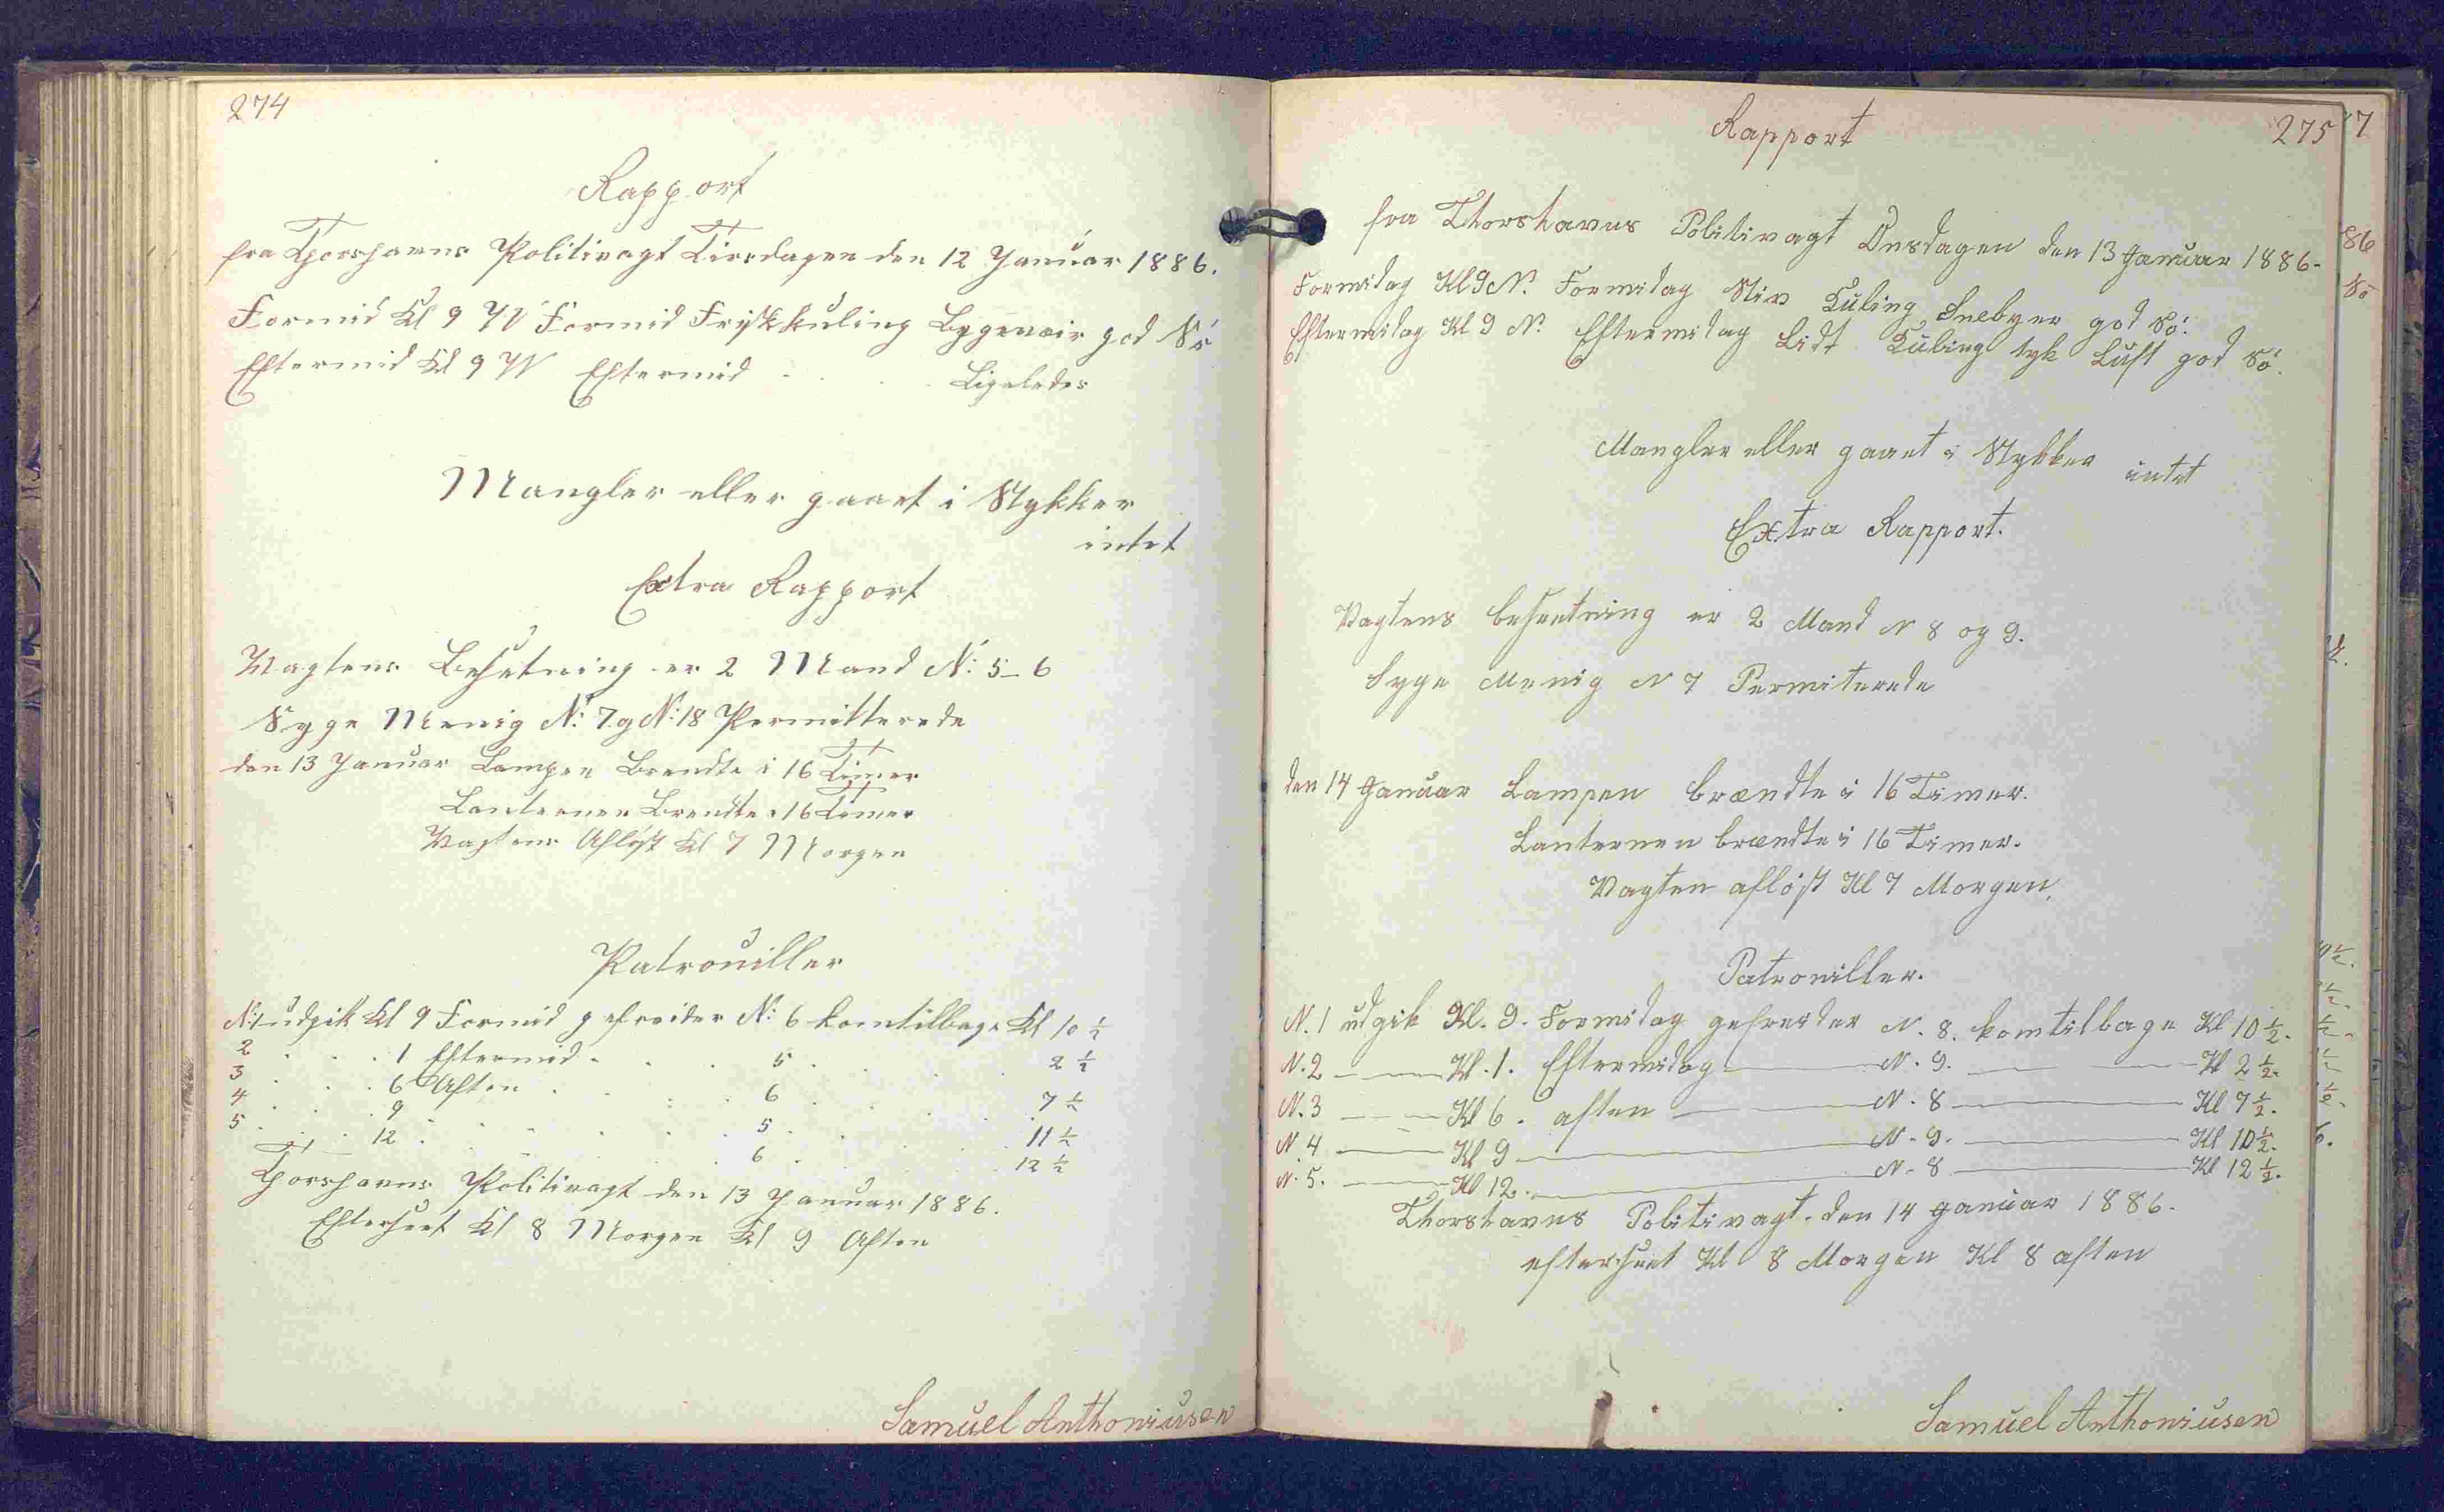 274
Rapport
fra Thorshavns Politivagt Tirsdagen den 12 Januar 1886.
Formid Kl 9 W Formid Friskkuling Bygeveir god Sö
Eftermid Kl 9 W Eftermid . . . Ligeledes
Mangler eller gaaet i Stykker
intet
Extra Rapport
Vagtens Besetning er 2 Mand N: 5-6
Syge Menig N: 7 g N: 18 Permitterede
den 13 Januar Lampen Brendte i 16 Timer
Lanternen Brendte i 16 Timer
Vagtens Aflöst Kl 7 Morgen
Patrouiller
N: 1 udgik Kl 9 Formid gefreider N: 6 kom tilbage Kl 10 ½
2 . . . 1 Eftermid . . . 5 . . . 2 ½
3 . . . 6 Aften . . . 6 . . . 7 ½
4 . . . 9 . . . 5 . . . 11 ½
5 . . . 12 . . . 6 . . . 12 ½
Thorshavns Politivagt den 13 Januar 1886.
Efterseet Kl 8 Morgen Kl 9 Aften
Samuel Anthoniusen
275
Rapport
fra Thorshavns Politivagt Onsdagen den 13 Januar 1886.
Formidag Kl 9 N. Formidag Stiv Kuling Snebyer god Sö.
Eftermidag Kl 9 N: Eftermidag Lidt Kuling tyk Luft god Sö.
Mangler eller gaaet i Stykker intet
Extra Rapport.
Vagtens besætning er 2 Mand N 8 og 9.
Syge Menig N 7 Permiterede
den 14 Januar Lampen brændte i 16 Timer.
Lanternen brændte i 16 Timer.
Vagten aflöst Kl 7 Morgen,
Patrouiller.
N. 1 udgik Kl. 9. Formidag gefreider N. 8. kom tilbage Kl 10 ½.
N. 2 — Kl. 1. Eftermidag — N. 9. — Kl 2 ½.
N. 3 — Kl 6. aften — N. 8 — Kl 7 ½.
N. 4 — Kl 9 — N. 9. — Kl 10 ½.
N. 5. — Kl 12. — N. 8 — Kl 12 ½.
Thorshavns Politivagt. den 14 Januar 1886.
efterseet Kl 8 Morgen Kl 8 aften
Samuel Anthoniusen